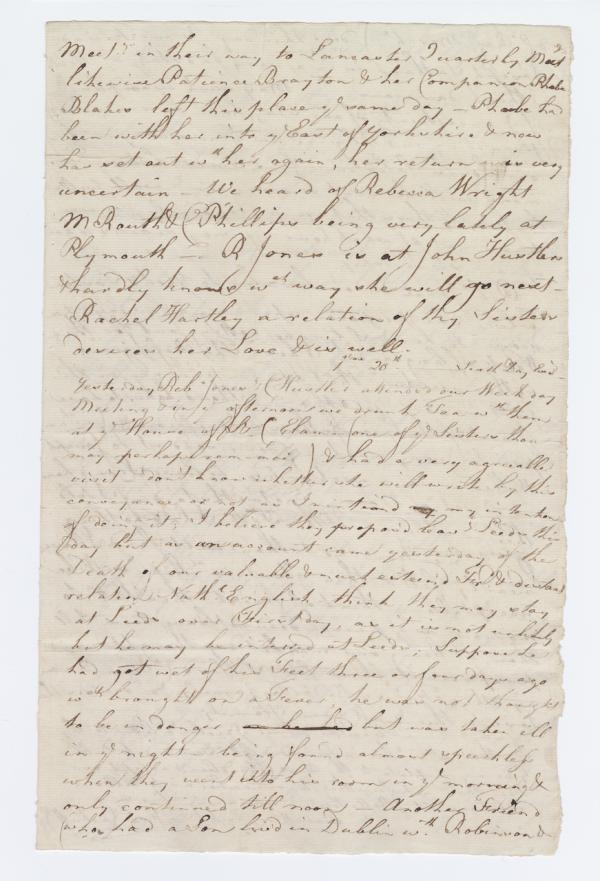 Meetg in their way to Lancaster Quarterly Meet
likewise Patience Brayton & her Companion Phebe
Blakes left this place ye same day – Phebe had
been with her into ye East of Yorkshire & now
has set out wth her again, her return is very
uncertain – We heard of Rebecca Wright
M Routh & C Phillips being very lately at
Plymouth – R Jones is at John Hustlers
& hardly knows wch way she will go next –
Rachel Hartley a relation of thy Sisters
desires her Love & is well.
20th Sixth Day Eve
Yesterday Reba Jones & C Hustler attended our Week day
Meeting & in ye afternoon we drank Tea wth them
at ye House of & C Elam (one of ye Sisters thou
may perhaps remember) & had a very agreeable
visit don't know whether she will write by this
conveyance or not as I mentiond my intention
of doing it; I believe they propos'd leavg Leeds this
day but as an account came yesterday of the
Death of our valuable & much esteemd Frd & distant
relation Nathl English think they may stay
at Leeds over First day, as it is not unlikely
but he may be interred at Leeds; Suppose he
had got wet of his Feet three or four days ago
wch brought on a Fever, he was not thought
to be in danger, but was taken ill
in ye night – being found almost speechless
when they went into his room in ye morning &
only continued till noon – Another Friend
(who had a Son livd in Dublin wth Robinson &